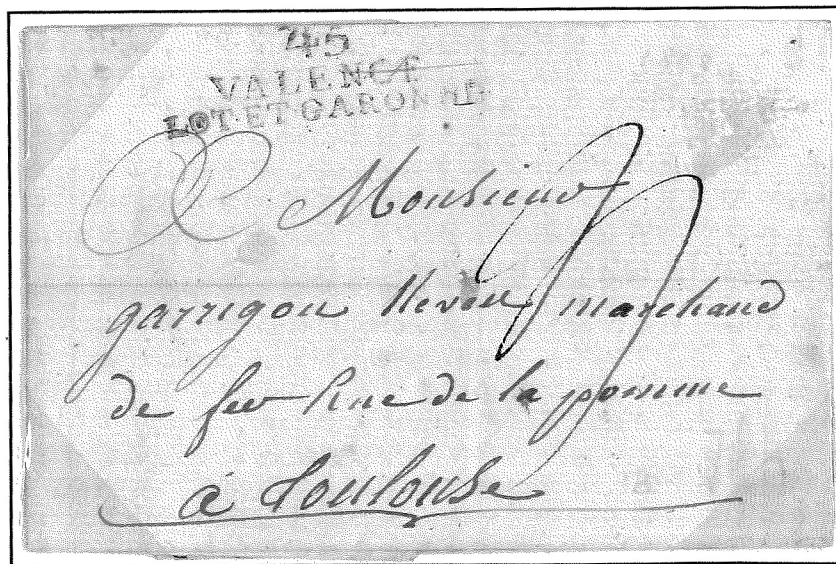 45
VALENCE
LOT ET GARONNE
A Monsieur
garrigou Neveu marchand
de fer Rue de la pomme
à Toulouse